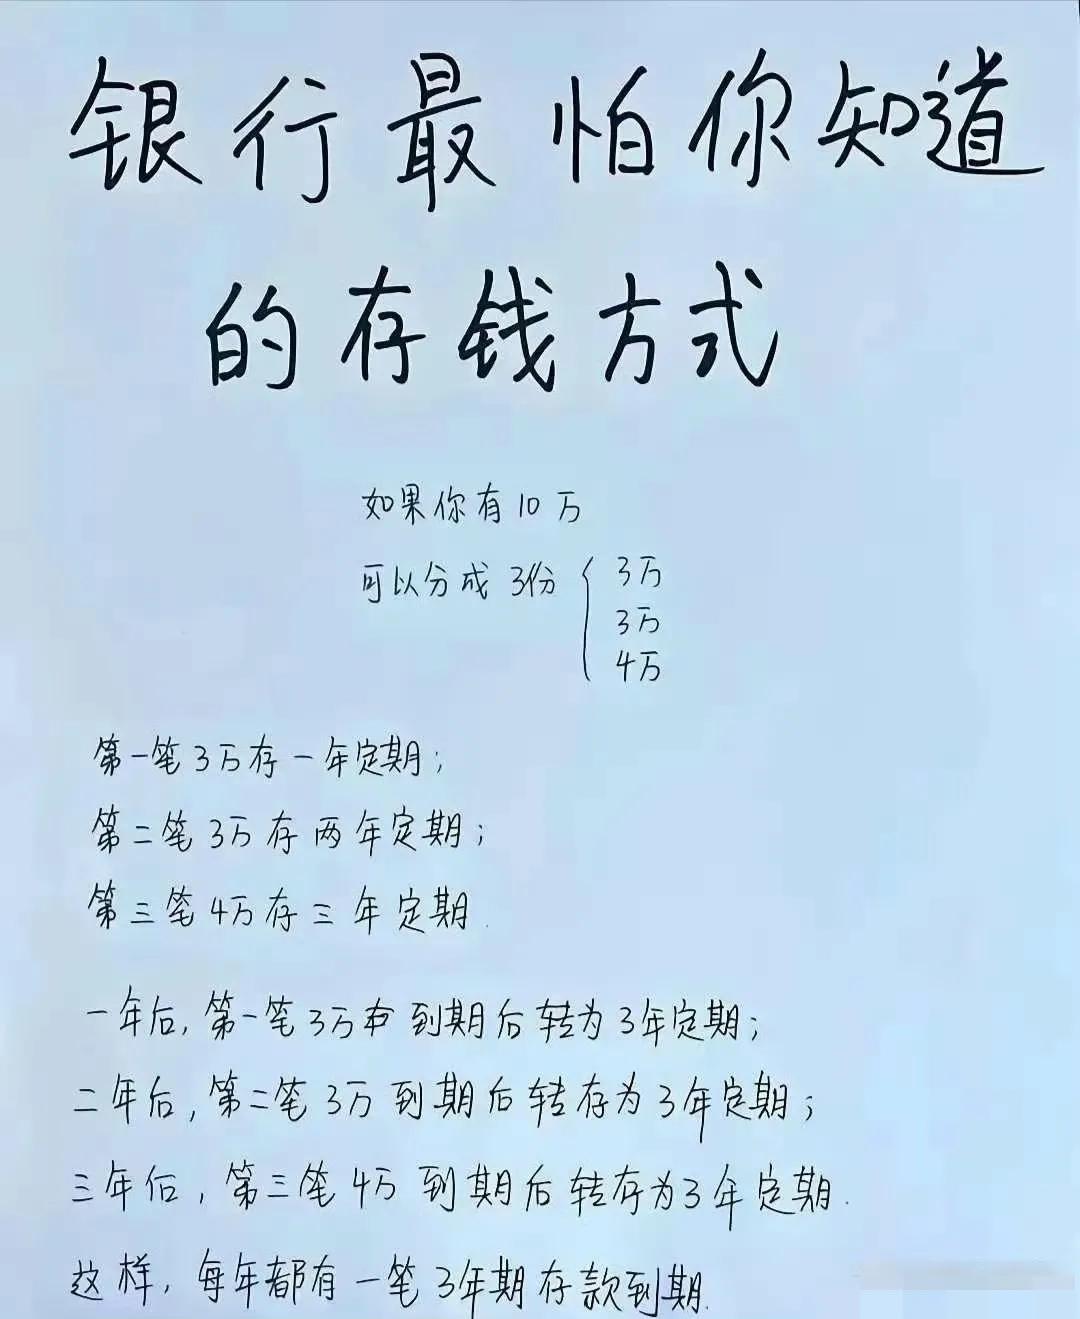 银行最怕你知道
的存钱方式
如果你有10万
可以分成3份
3万
3万
4万
第一笔3万存一年定期;
第二笔3万存两年定期;
第三笔4万存三年定期.
一年后,第一笔3万 到期后转为3年定期;
二年后,第二笔3万到期后转存为3年定期;
三年后,第三笔4万到期后转存为3年定期.
这样,每年都有一笔3年期存款到期.